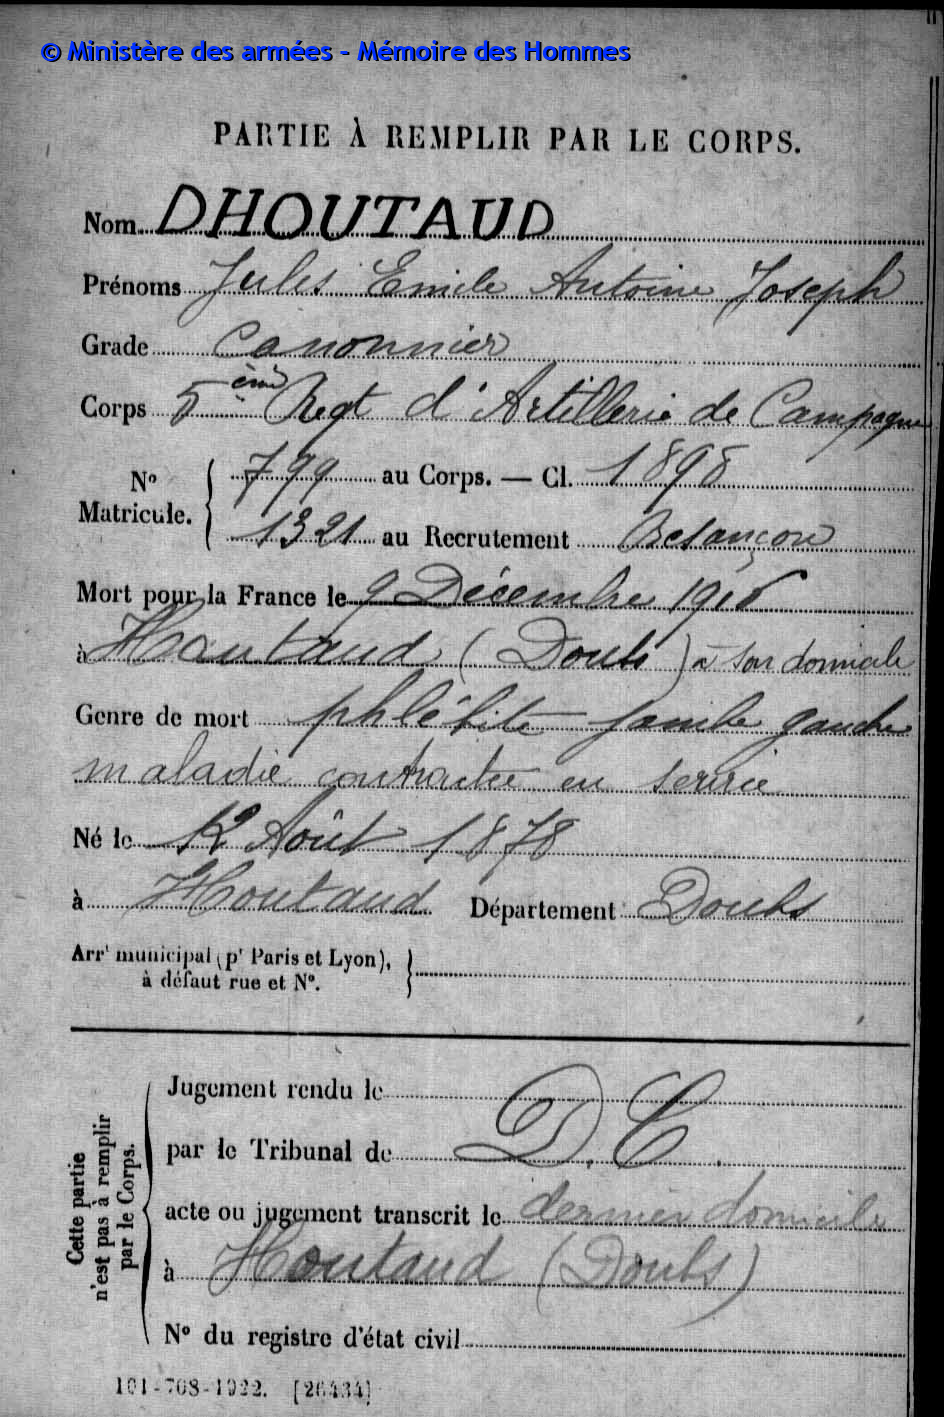 © Ministère des armées - Mémoire des Hommes
PARTIE À REMPLIR PAR LE CORPS.
Nom DHOUTAUD
Prénoms Jules Emile Antoine Joseph
Grade Canonnier
Corps 5ème Regt d'Artillerie de Campagne
No Matricule. 799 au Corps. — Cl. 1898
1321 au Recrutement Besançon
Mort pour la France le 9 Décembre 1916
à Houtaud (Doubs) à son domicile
Genre de mort phlébite jambe gauche
maladie contractée en service
Né le 12 Août 1878
à Houtaud Département Doubs
Arrt municipal (pr Paris et Lyon),
à défaut rue et No.
Cette partie n'est pas à remplir par le Corps.
Jugement rendu le
par le Tribunal de D.C.
acte ou jugement transcrit le dernier domicile
à Houtaud (Doubs)
No du registre d'état civil
101-708-1922. [26434]